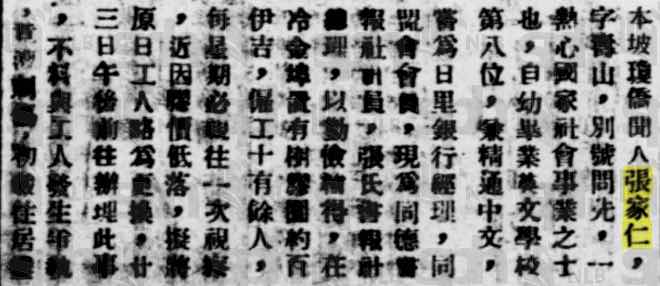 本坡瓊僑聞人張家仁，
字靑山，別號問先，一
熱心國家社會事業之士
也，自幼畢業英文學校
第八位，兼精通中文，
嘗爲日里銀行經理，同
盟會會員，現爲同德書
報社社員，張氏書報社
總理，以勤儉積得，在
冷金埠置有樹膠園約百
伊吉，僱工十有餘人，
每星期必親往一次視察
，近因膠價低落，擬將
原日工人略爲更換，廿
三日午後前往辦理此事
，不料與工人發生爭執
，初往居